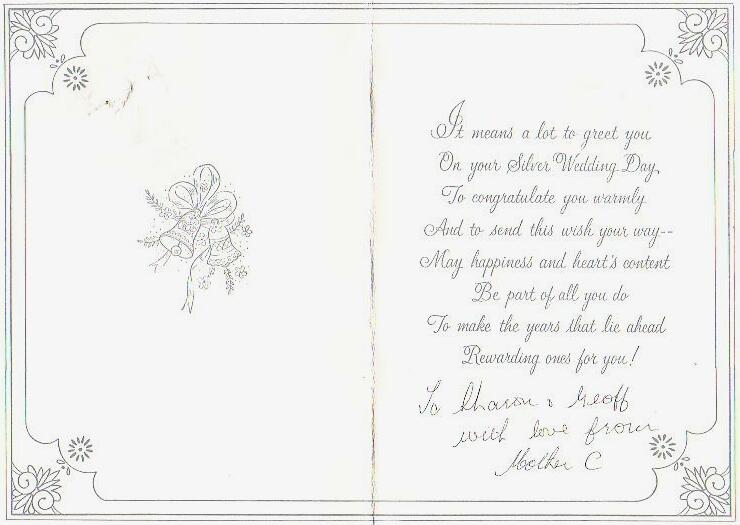 It means a lot to greet you
On your Silver Wedding Day,
To congratulate you warmly
And to send this wish your way--
May happiness and heart's content
Be part of all you do
To make the years that lie ahead
Rewarding ones for you!
To Sharon & Geoff
with love from
Mother C